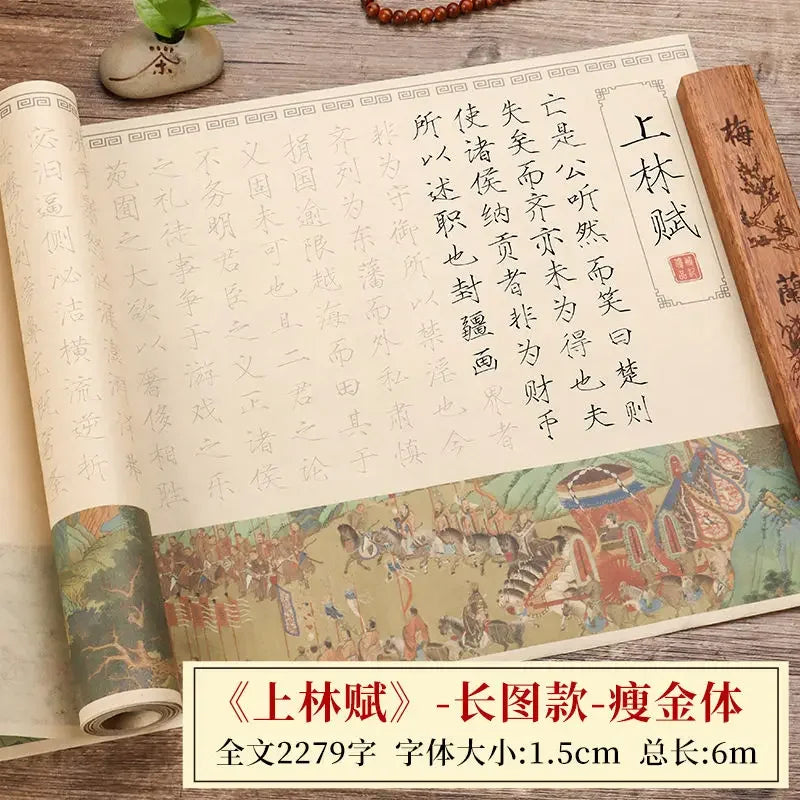 上林赋
亡是公听然而笑曰楚则
失矣而齐亦未为得也夫
使诸侯纳贡者非为财币
所以述职也封疆画界者
非为守御所以禁淫也今
齐列为东藩而外私肃慎
捐国逾限越海而田其于
义固未可也且二君之论
不务明君臣之义正诸侯
之礼徒事争于游戏之乐
苑囿之大欲以奢侈相胜
宓汩逼侧泌洁横流逆折
茶
梅
蘭
《上林赋》-长图款-瘦金体
全文2279字 字体大小:1.5cm 总长:6m